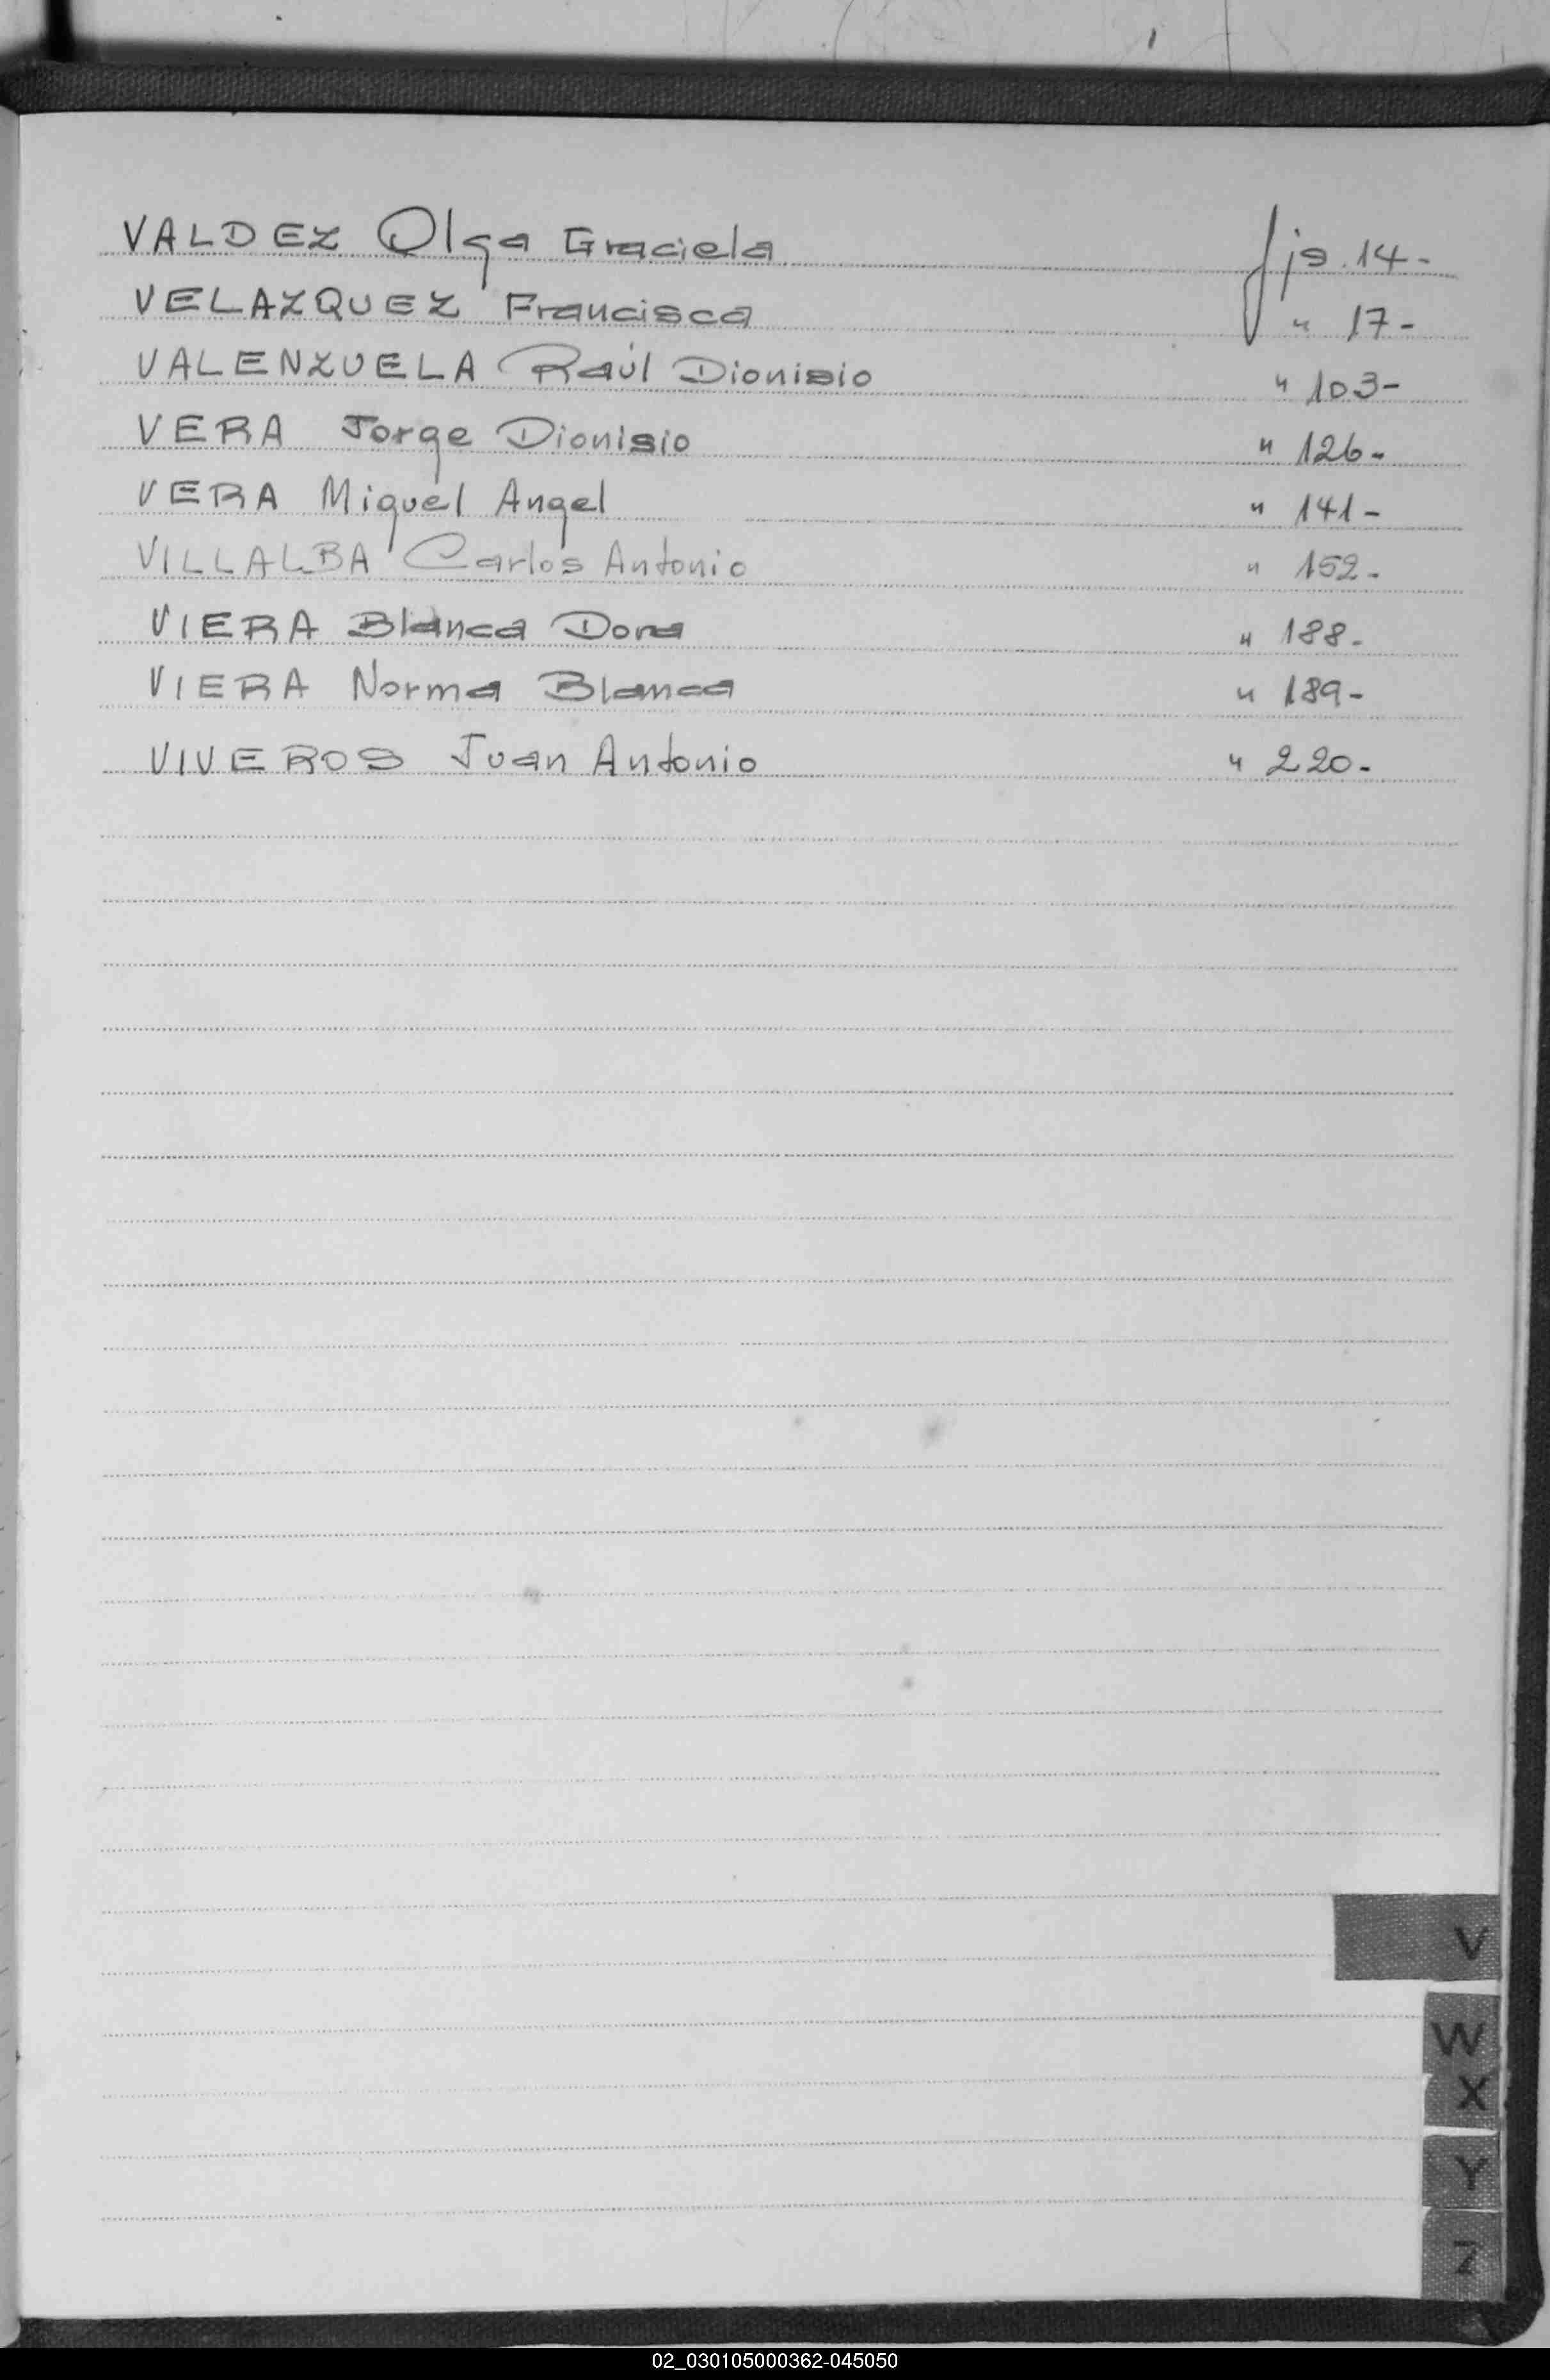 VALDEZ Olga Graciela fjs. 14-
VELAZQUEZ Francisca " 17-
VALENZUELA Raúl Dionisio " 103-
VERA Jorge Dionisio " 126-
VERA Miguel Angel " 141-
VILLALBA Carlos Antonio " 152-
VIERA Blanca Dora " 188-
VIERA Norma Blanca " 189-
VIVEROS Juan Antonio " 220-
V
W
X
Y
Z
02_030105000362-045050